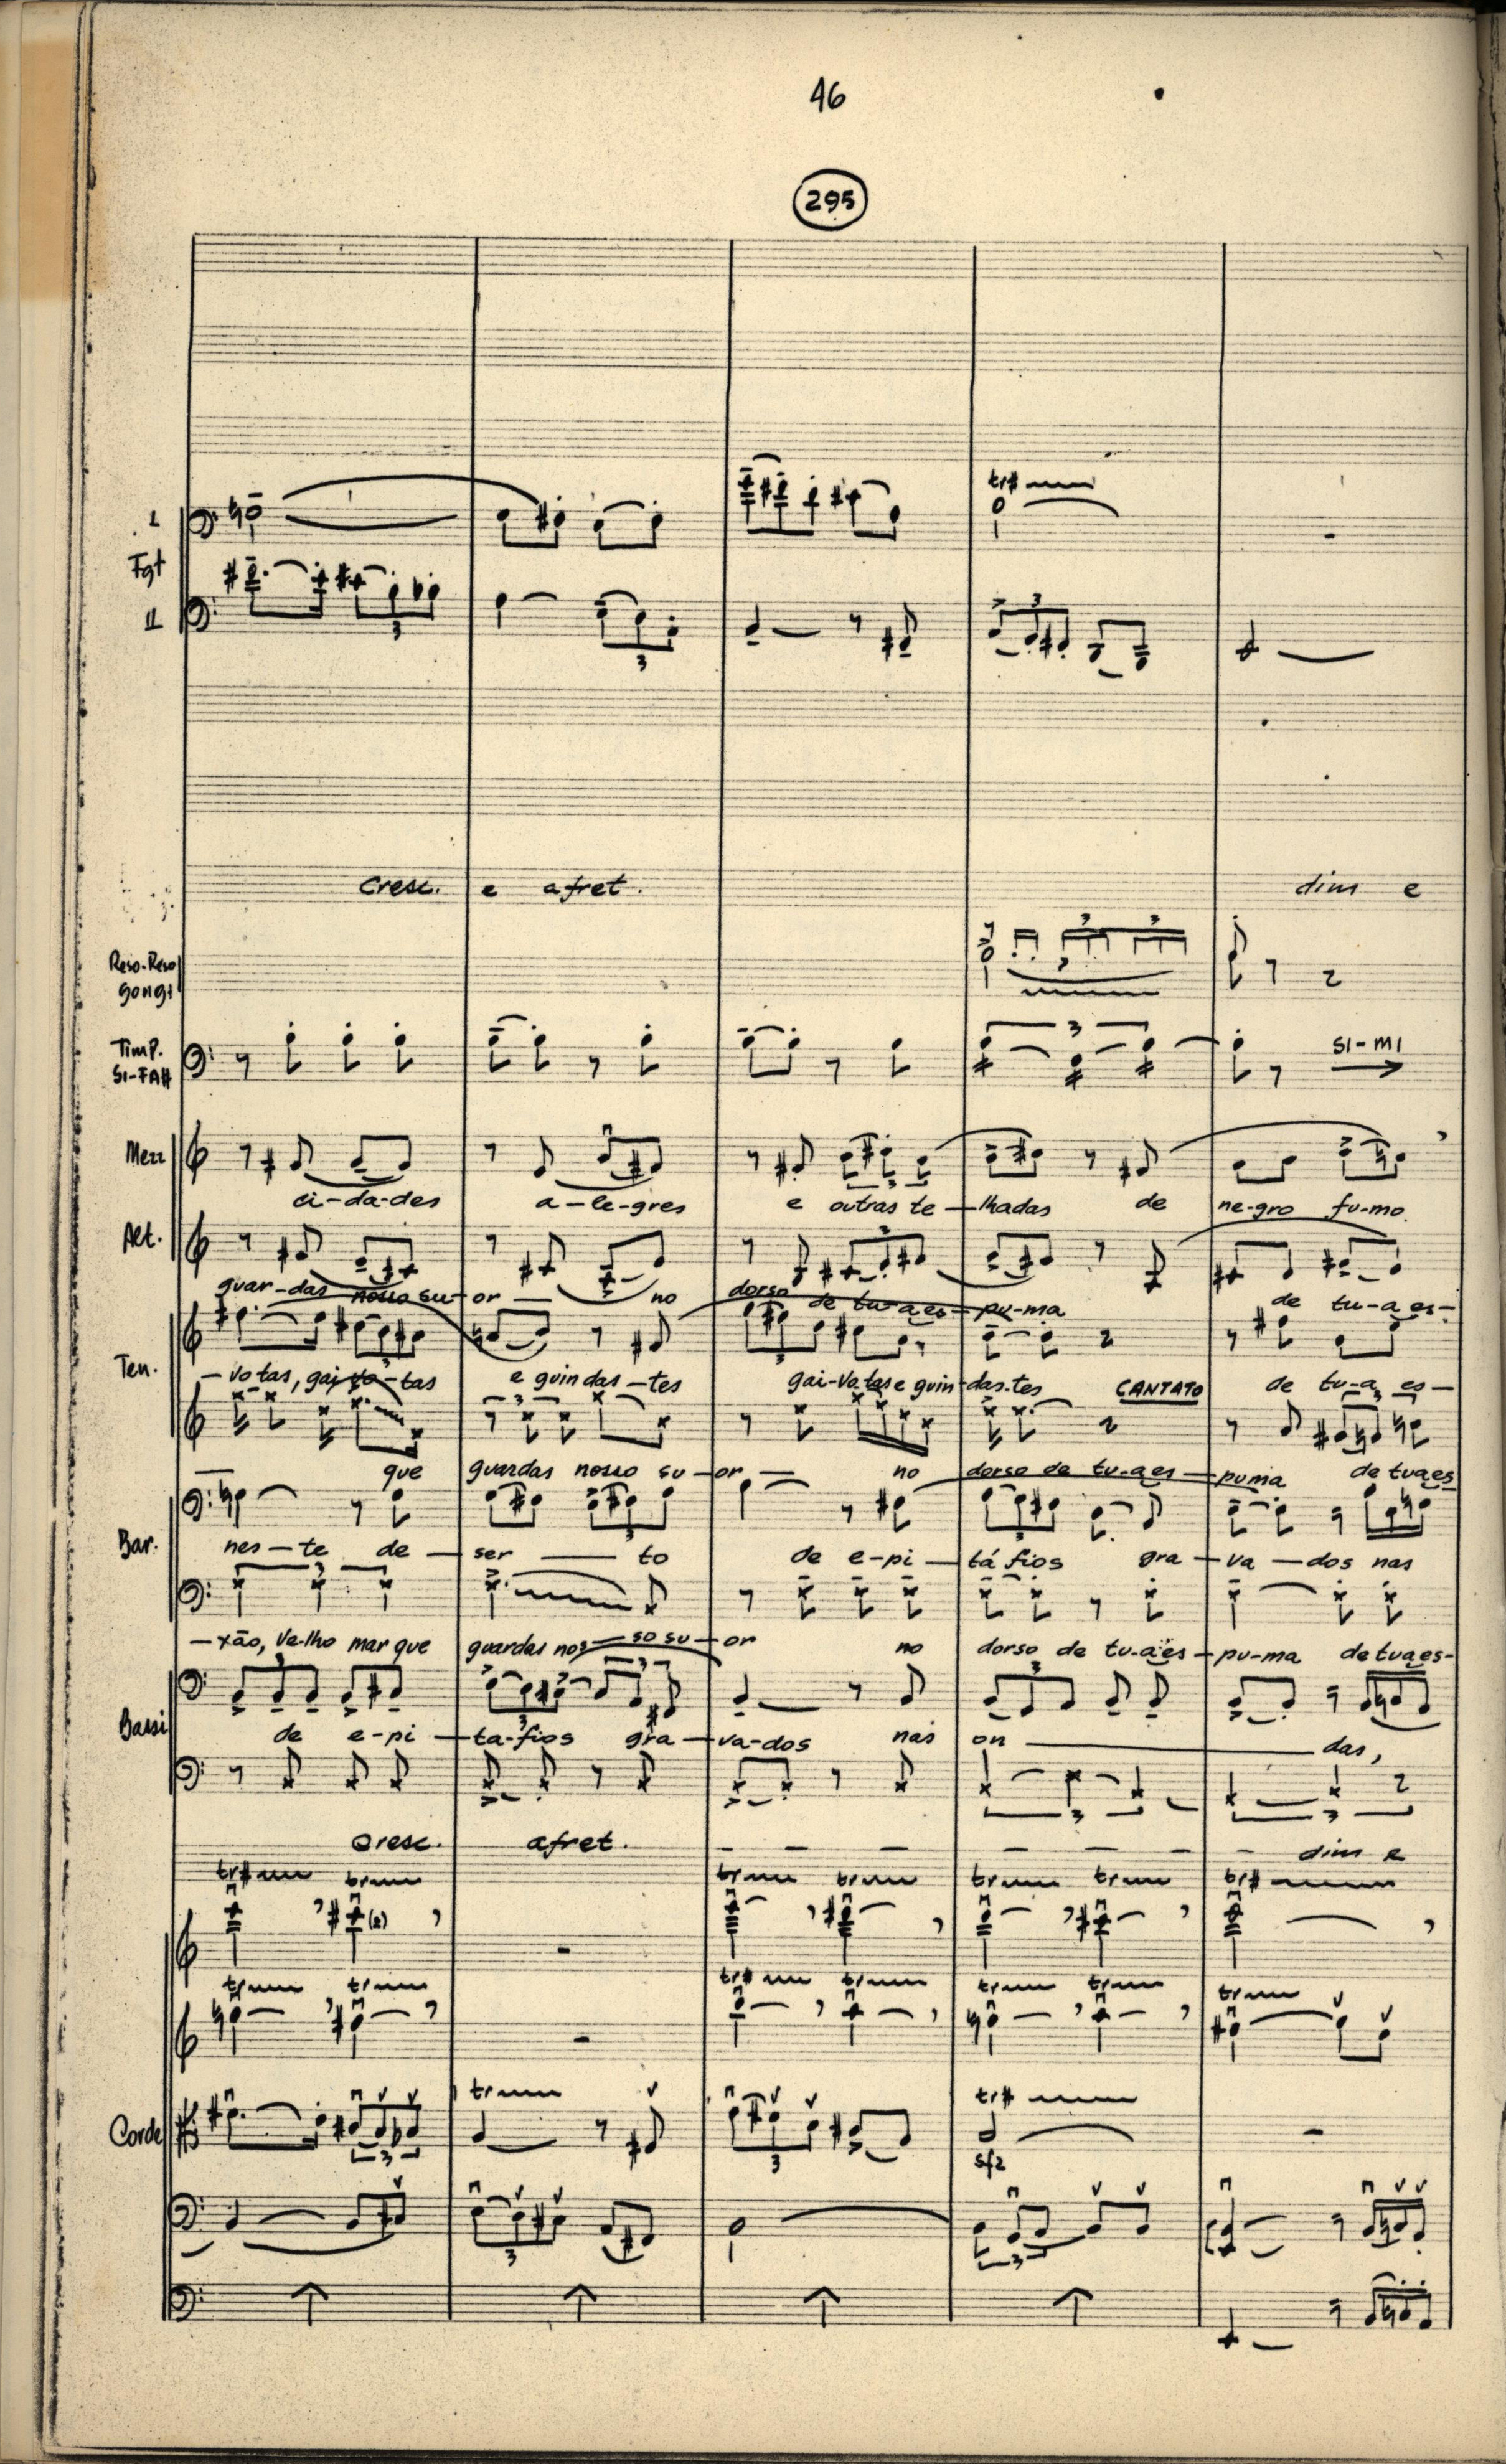 46
295
I
Fgt
II
cresc. e afret. dim e
Reso-Reso
gongs
Timp.
SI-FA#
3 3
3
SI-MI
Mezz
ci-da-des a-le-gres e outras te-lhadas de ne-gro fu-mo.
Alt.
guar-das nosso su-or no dorso de tu-a es-pu-ma de tu-a es-
Ten.
-vo tas, gai-vo-tas e guindas-tes gai-vo-tas e guin-das-tes CANTATO de tu-a es-
que guardas nosso su-or no dorso de tu-a es-puma de tua es
Bar.
nes-te de-ser to de e-pi-tá fios gra-va-dos nas
-xão, Ve-lho mar que guardas nos-so su-or no dorso de tu-a es-pu-ma de tua es-
Bassi
de e-pi-ta-fios gra-va-dos nas on das,
cresc. afret. - - - - - - dim e
tr# tr tr tr tr tr tr#
(2)
tr tr tr# tr tr tr tr
Corde
tr tr#
3 3 sfz
3 3